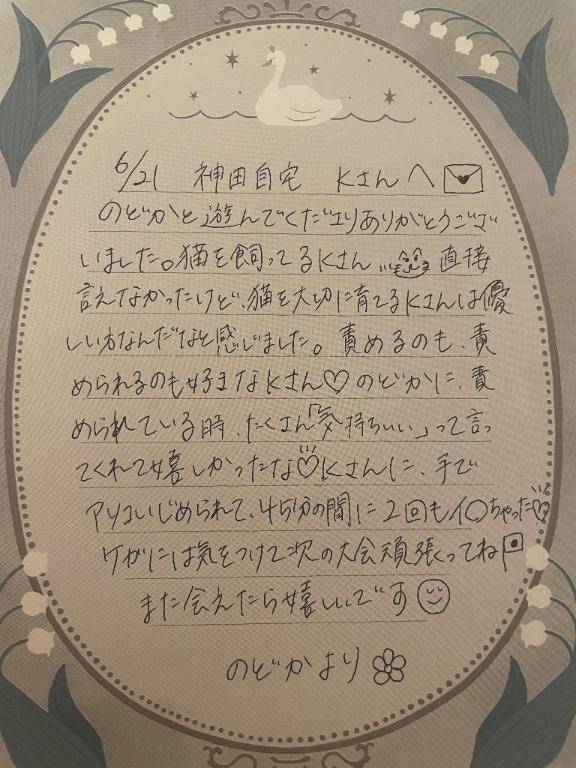 6/21 神田自宅 Kさんへ
のどかと遊んでくださりありがとうござ
いました。猫を飼ってるKさん 直接
言えなかったけど、猫を大切に育てるKさんは優
しい方なんだなと感じました。責めるのも、責
められるのも好きなKさん♡のどかに、責
められている時、たくさん「気持ちいい」って言っ
てくれて嬉しかったな♡Kさんに、手で
アソコいじめられて、45分の間に2回もイ〇ちゃった♡
ケガには気をつけて次の大会頑張ってね
また会えたら嬉しいです
のどかより